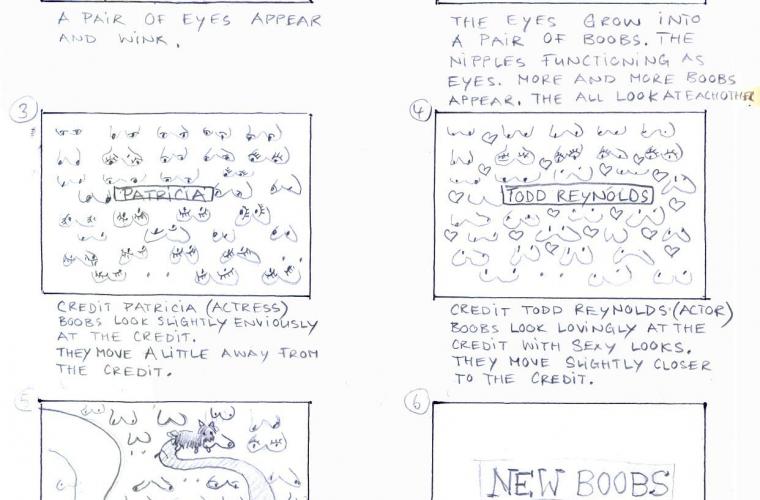 A PAIR OF EYES APPEAR
AND WINK.
THE EYES GROW INTO
A PAIR OF BOOBS. THE
NIPPLES FUNCTIONING AS
EYES. MORE AND MORE BOOBS
APPEAR. THE ALL LOOK AT EACHOTHER
3
PATRICIA
CREDIT PATRICIA (ACTRESS)
BOOBS LOOK SLIGHTLY ENVIOUSLY
AT THE CREDIT.
THEY MOVE A LITTLE AWAY FROM
THE CREDIT.
4
TODD REYNOLDS
CREDIT TODD REYNOLDS (ACTOR)
BOOBS LOOK LOVINGLY AT THE
CREDIT WITH SEXY LOOKS.
THEY MOVE SLIGHTLY CLOSER
TO THE CREDIT.
5
6
NEW BOOBS